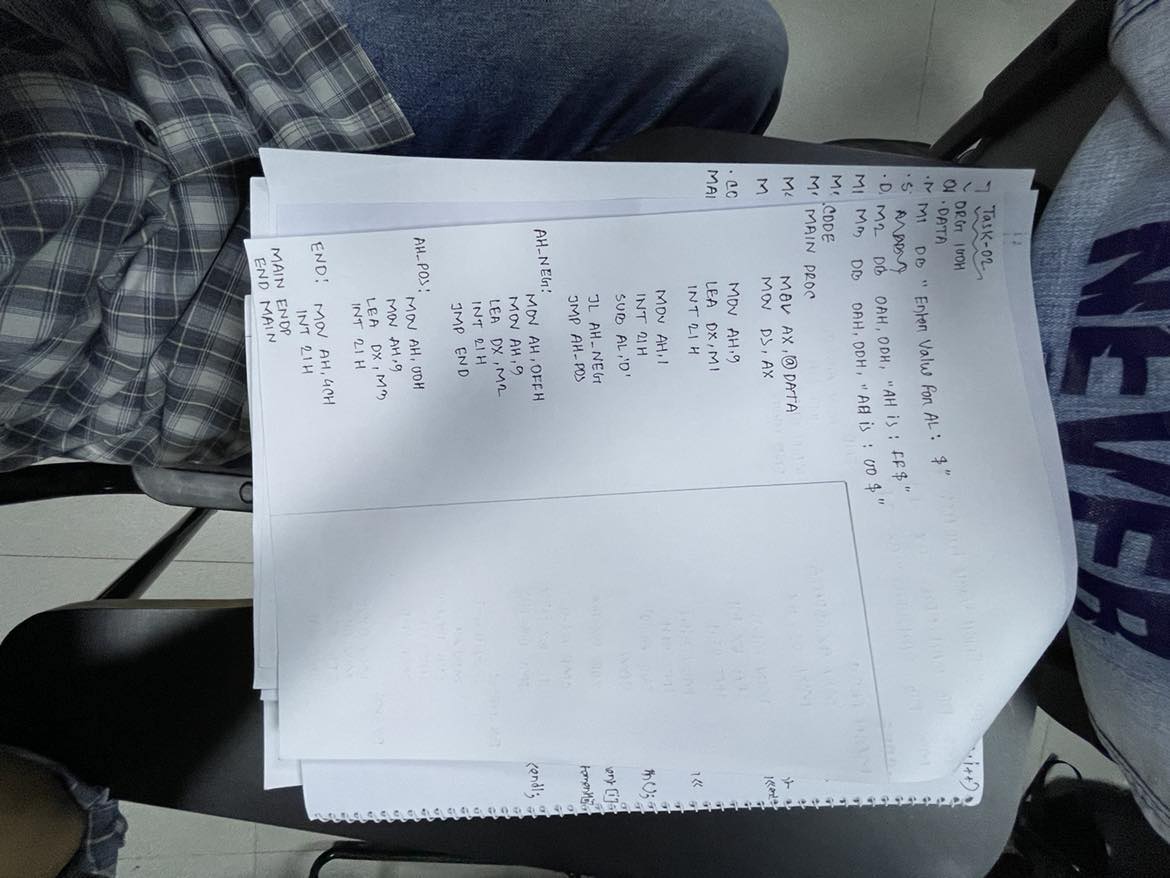 NEVER
i++)
Task-02
ORG 100H
.DATA
M1 DB "Enter Value For AL: $"
M2 DB 0AH, 0DH, "AH is : FF$"
M3 DB 0AH, 0DH, "AH is : 00 $"
.CODE
MAIN PROC
MOV AX, @DATA
MOV DS, AX
MOV AH,9
LEA DX, M1
INT 21H
MOV AH,1
INT 21H
SUB AL,'0'
JL AH_NEG
JMP AH_POS
AH_NEG:
MOV AH, 0FFH
MOV AH,9
LEA DX, M2
INT 21H
JMP END
AH_POS:
MOV AH, 00H
MOV AH,9
LEA DX, M3
INT 21H
END: MOV AH, 4CH
INT 21H
MAIN ENDP
END MAIN
.D
M1
M
.CO
MAI
<endl;